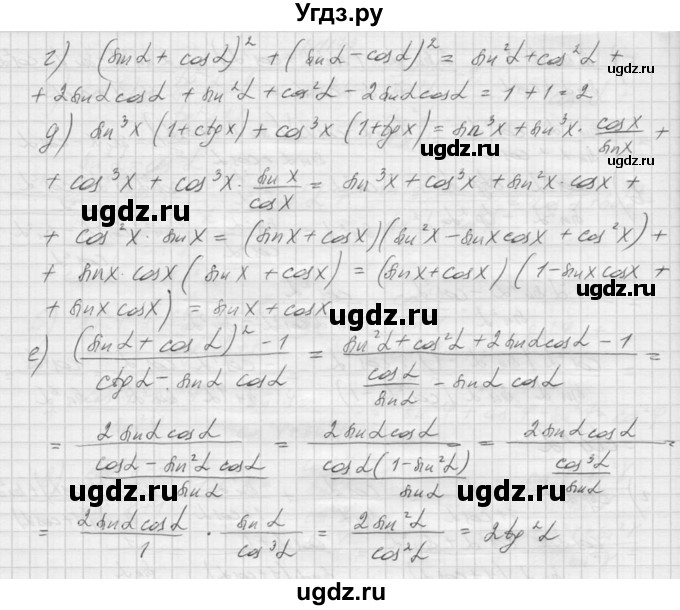 Угдз.ру
г) (sinα + cosα)² + (sinα - cosα)² = sin²α + cos²α +
+ 2sinα cosα + sin²α + cos²α - 2sinα cosα = 1 + 1 = 2
ugdz.ru
д) sin³x (1 + ctgx) + cos³x (1 + tgx) = sin³x + sin³x · cosx/sinx +
ugdz.ru
+ cos³x + cos³x · sinx/cosx = sin³x + cos³x + sin²x · cosx +
ugdz.ru
+ cos²x · sinx = (sinx + cosx)(sin²x - sinx cosx + cos²x) +
ugdz.ru
+ sinx · cosx (sinx + cosx) = (sinx + cosx) (1 - sinx cosx +
+ sinx cosx) = sinx + cosx
ugdz.ru
е) ((sinα + cosα)² - 1)/(ctgα - sinα cosα) = (sin²α + cos²α + 2sinα cosα - 1)/(cosα/sinα - sinα cosα) =
ugdz.ru
= (2sinα cosα)/((cosα - sin²α cosα)/sinα) = (2sinα cosα)/(cosα(1 - sin²α)/sinα) = (2sinα cosα)/(cos³α/sinα) =
ugdz.ru
ugdz.ru
= (2sinα cosα)/1 · sinα/cos³α = 2sin²α/cos²α = 2tg²α
ugdz.ru
ugdz.ru